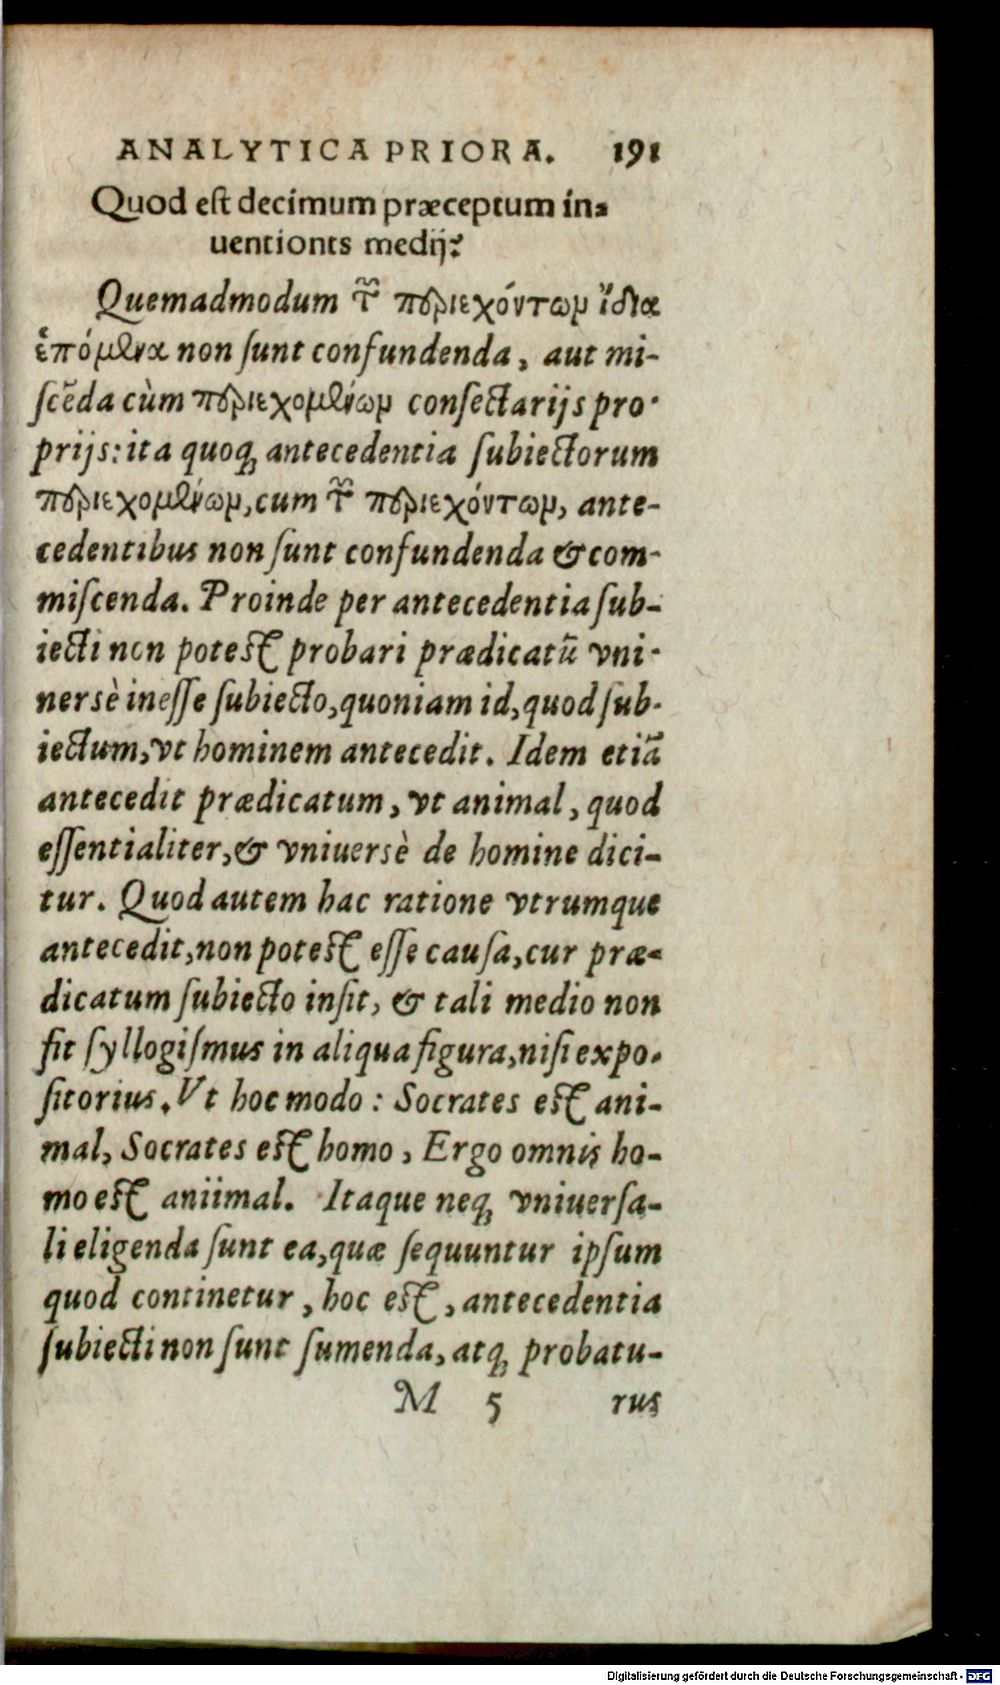 ANALYTICA PRIORA. 191
Quod est decimum præceptum in-
uentionts medij?
Quemadmodum τῶν περιεχόντωμ ἴδια
ἑπόμενα non sunt confundenda, aut mi-
scẽda cùm περιεχομένωμ consectarijs pro-
prijs: ita quoq; antecedentia subiectorum
περιεχομένωμ, cum τῶν περιεχόντωμ, ante-
cedentibus non sunt confundenda & com-
miscenda. Proinde per antecedentia sub-
iecti non potest probari prædicatũ vni-
nersè inesse subiecto, quoniam id, quod sub-
iectum, vt hominem antecedit. Idem etiã
antecedit prædicatum, vt animal, quod
essentialiter, & vniuersè de homine dici-
tur. Quod autem hac ratione vtrumque
antecedit, non potest esse causa, cur præ-
dicatum subiecto insit, & tali medio non
fit syllogismus in aliqua figura, nisi expo-
sitorius. Vt hoc modo: Socrates est ani-
mal, Socrates est homo, Ergo omnis ho-
mo est aniimal. Itaque neq; vniuersa-
li eligenda sunt ea, quæ sequuntur ipsum
quod continetur, hoc est, antecedentia
subiecti non sunt sumenda, atq; probatu-
M 5 rus
Digitalisierung gefördert durch die Deutsche Forschungsgemeinschaft - DFG